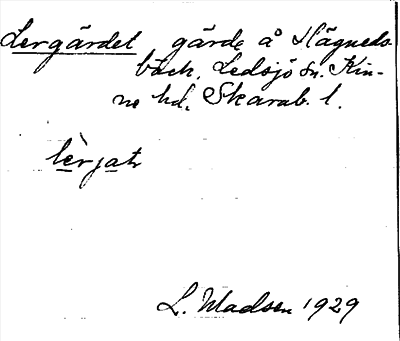 Lergärdet gärde å Hägneds-
bäck, Ledsjö sn. Kin-
ne hd. Skarab. l.
lèrjatr
L. Madsen 1929